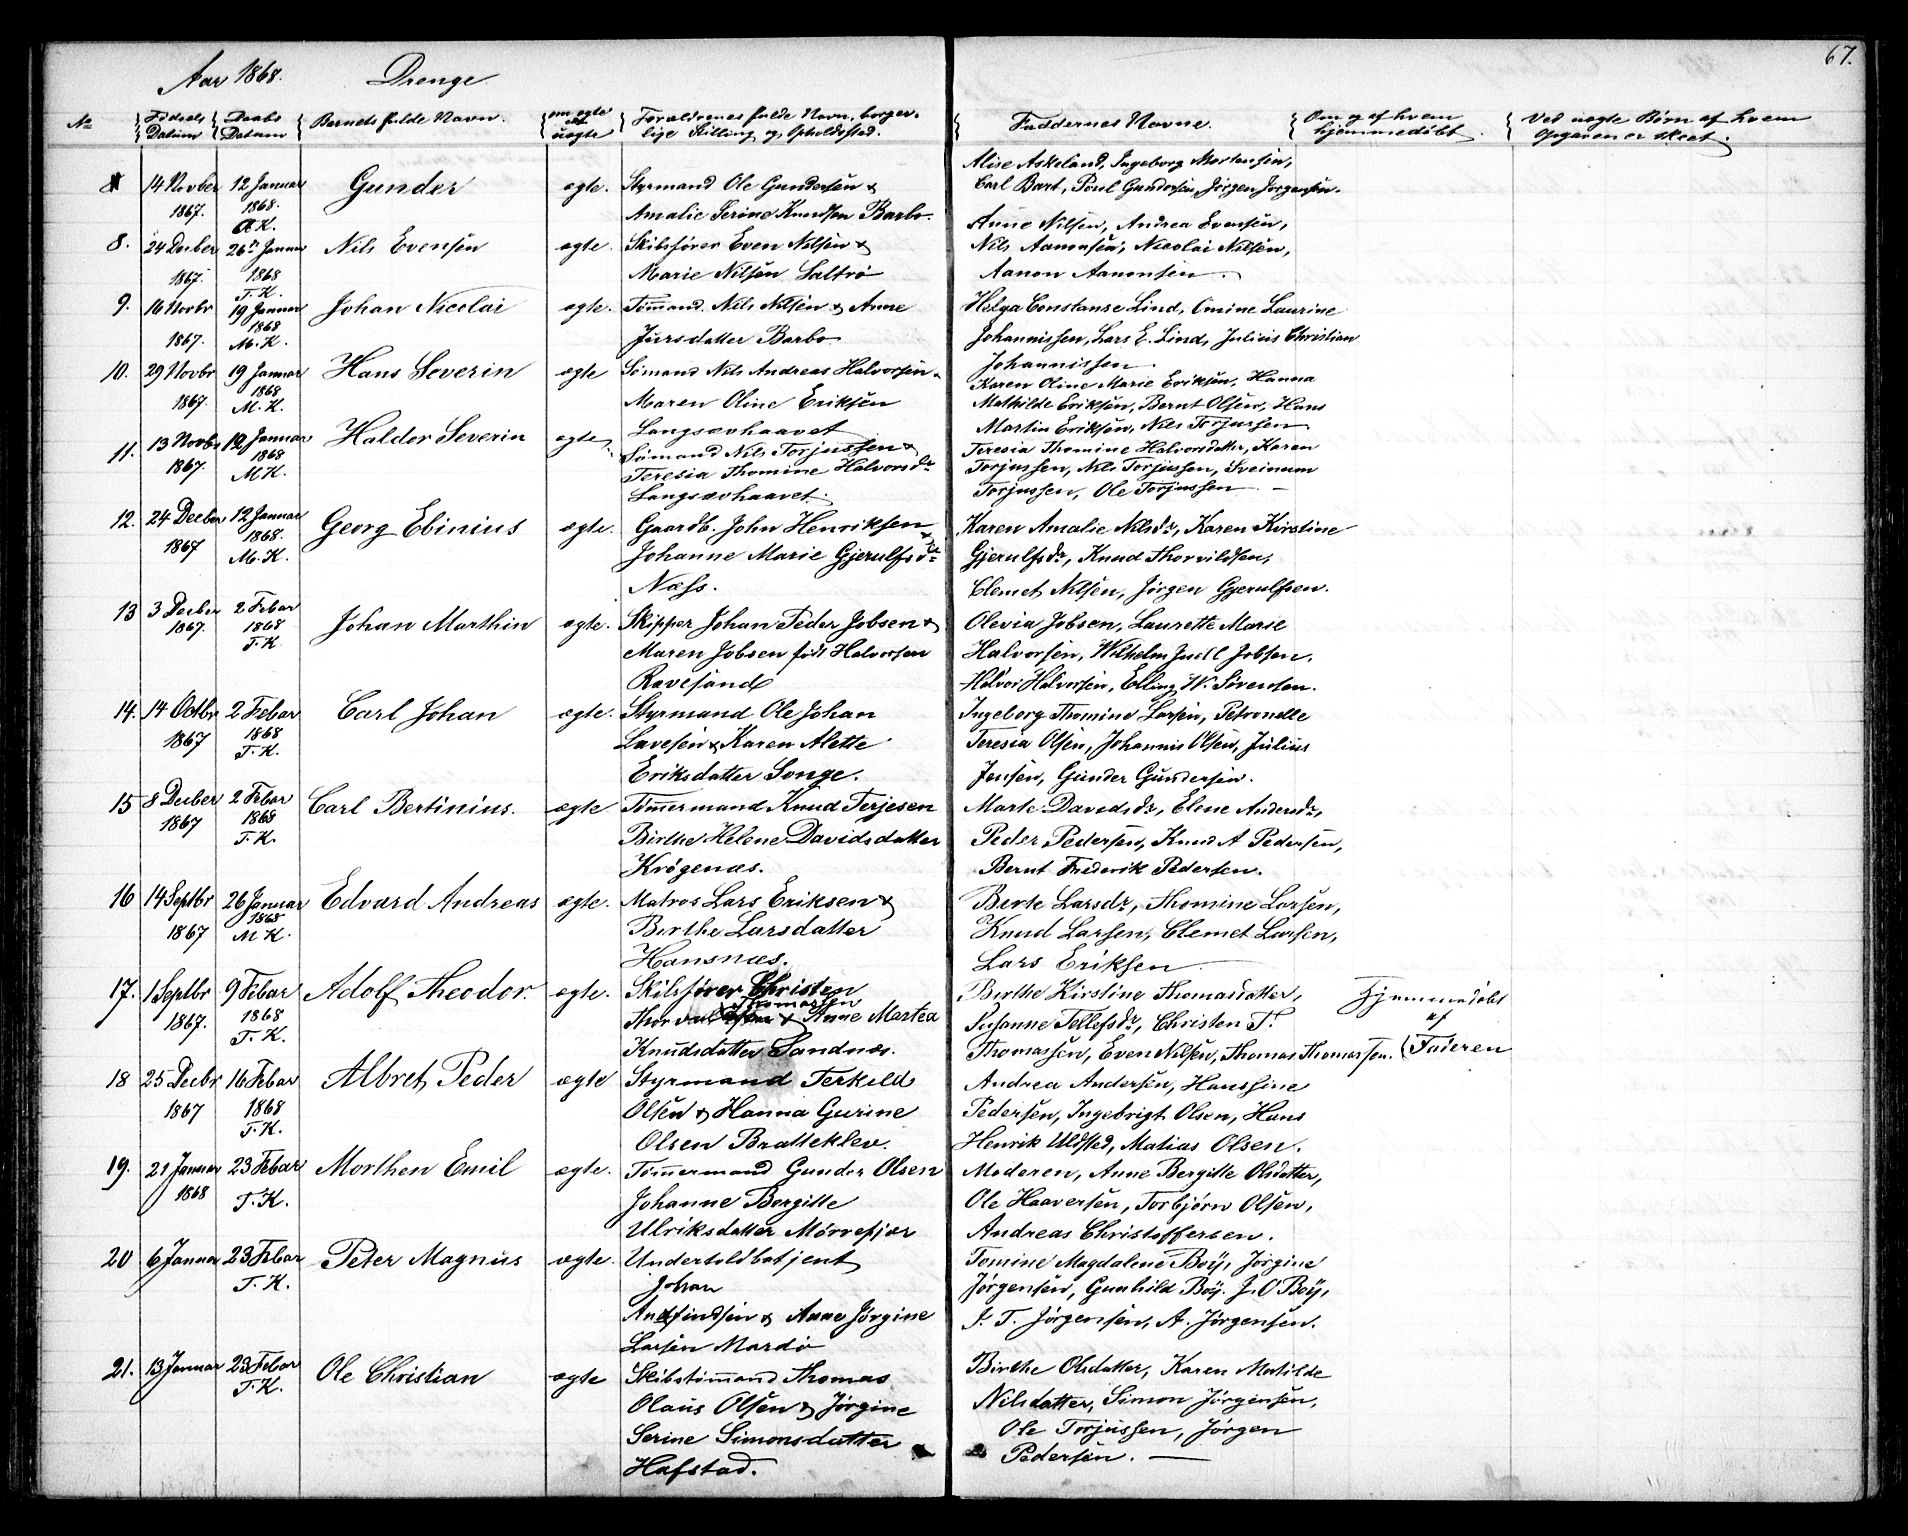 67.
Aar 1868. Drenge.
No Fødsels Datum Daabs Datum Barnets fulde Navn. om ægte el. uægte Forældrenes fulde Navn, borgerlige Stilling og Opholdssted. Faddernes Navne. Om og af hvem hjemmedøbt. Ved uægte Børn af hvem Opgaven er skeet.
Alise Askeland, Ingeborg Mortensen,
14 Novber 12 Januar Gunder ægte. Styrmand Ole Gundersen & Carl Bart, Poul Gundersen, Jørgen Jørgensen.
1867. 1868. Amalie Serine Knudsen Barbo.
A.K. Anne Nilsen, Andrea Evensen,
8. 24 Decber 26de Januar Nils Evensen ægte. Skibsfører Even Nilsen & Nils Aanonsen, Nicolai Nilsen,
1867. 1868 Marie Nilsen Saltrø Aanon Aanonsen.
T.K.
9. 16 Novbr 19 Januar Johan Nicolai ægte. Tømand. Nils Nilsen & Anne Helga Constanse Lind, Omine Laurine
1867. 1868 M.K. Jursdatter Barbo Johannissen, Lars E. Lind, Julius Christian
Johannissen.
10. 29 Novbr 19 Januar Hans Severin ægte Sømand Nils Andreas Halvorsen & Karen Oline Marie Eriksen, Hanna
1867. 1868 M.K. Maren Oline Eriksen Mathilde Eriksen, Bernt Olsen, Hans
Langsævhaavet Martin Eriksen, Nils Torjussen
11. 13 Novbr 19 Januar Haldor Severin ægte Sømand Nils Torjussen & Teresia Thomine Halvorsdatter, Karen
1867. 1868 M.K. Teresia Thomine Halvorsdr Torjussen, Nils Torjussen, Sveinum
Langsævhaavet. Torjussen, Ole Torjussen. —
12. 24 Decber 12 Januar Georg Ebinius ægte. Gaardb. John Henriksen & Karen Amalie Nilsdr, Karen Kirstine
1867 1868. M.K. Johanne Marie Gjerulfsdr Gjerulfsdr, Knud Thorvildsen,
Næss. Clemet Nilsen, Jørgen Gjerulfsen.
13 3 Decber 2 Febar Johan Marthin ægte. Skipper Johan Peder Jobsen & Olevia Jobsen, Laurette Marie
1867. 1868 T.K. Maren Jobsen født Halvorsen Halvorsen, Wilhelm Juell Jobsen,
Ravesand Halvor Halvorsen, Elling W. Sørensen.
14. 14 Octbr 2 Febar Carl Johan ægte. Styrmand Ole Johan Ingeborg Thomine Larsen, Petronelle
1867 1868 T.K. Lavesen & Karen Alette Teresia Olsen, Johannis Olsen, Julius
Eriksdatter Songe. Jensen, Gunder Gundersen.
15 8 Decber 2 Febar Carl Bertinius. ægte Tømermand Knud Terjesen Marte Davidsdr, Elene Andersdr,
1867 1868 T.K. Birthe Helene Davidsdatter Peder Pedersen, Knud A Pedersen,
Krøgenæs. Bernt Frederik Pedersen.
16 14 Septbr 26 Januar Edvard Andreas ægte. Matros Lars Eriksen & Berte Larsdr, Thomine Larsen,
1867 1868 M K. Birthe Larsdatter Knud Larsen, Clemet Larsen,
Hansnæs. Lars Eriksen
17. 1 Septbr 9 Febar Adolf Theodor. ægte. Skibsfører Christen Birthe Kirstine Thomasdatter, Hjemmedøbt
1867. 1868 T.K. Thomassen & Anne Martea Susanne Tellefsdr, Christen T. af
Knudsdatter Sandnæs. Thomassen, Even Nilsen, Thomas Thomassen. Faderen
18 25 Decbr 16 Febar Albret Peder ægte Styrmand Terkild Andrea Andersen, Hansine
1867 1868 T.K. Olsen & Hanna Gurine Pedersen, Ingebrigt Olsen, Hans
Olsen Bratteklev. Henrik Uldsted, Matias Olsen.
19. 21 Januar 23 Febar Morthen Emil ægte. Tømermand Gunder Olsen Moderen, Anne Bergitte Olsdatter,
1868 T.K. Johanne Bergitte Ole Haaversen, Torbjørn Olsen,
Ulriksdatter Mørrefjær Andreas Christoffersen.
20 6 Januar 23 Febar Peter Magnus ægte. Undertoldbetjent Tomine Magdalene Boÿ, Jørgine
T.K. Johan Jørgensen, Gunhild Boÿ. J. C Boÿ,
Andfindsen & Anne Jørgine I. T. Jørgensen, A. Jørgensen.
Larsen Mardø
21. 13 Januar 23 Febar Ole Christian ægte Skibstømand Thomas Birthe Olsdatter, Karen Matilde
T.K. Olaus Olsen & Jørgine Nilsdatter, Simon Jørgensen,
Serine Simonsdatter Ole Torjussen, Jørgen
Hafstad. Pedersen. —